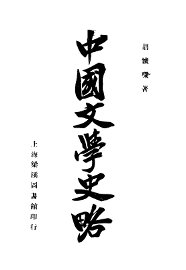 胡懷琛著
中國文學史略
上海梁溪圖書館印行